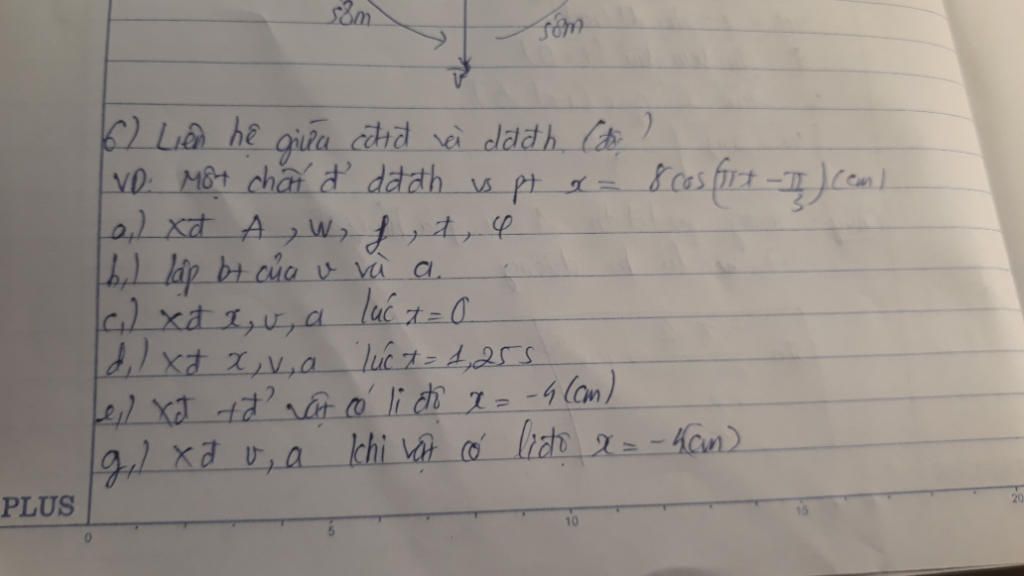 58m
58m
v
6) Liên hệ giữa cđtđ và dđđh. (đọ)
VD: Một chất đ' dđđh vs pt x = 8cos(πt - π/3) (cm)
a,) xđ A, W, f, t, φ
b,) lập bt của v và a.
c,) xđ x, v, a lúc t = 0
d,) xđ x, v, a lúc t = 1,25 s
e,) xđ tđ' vật có li độ x = -4 (cm)
g,) xđ v, a khi vật có li độ x = -4 (cm)
PLUS
0 5 10 15 20